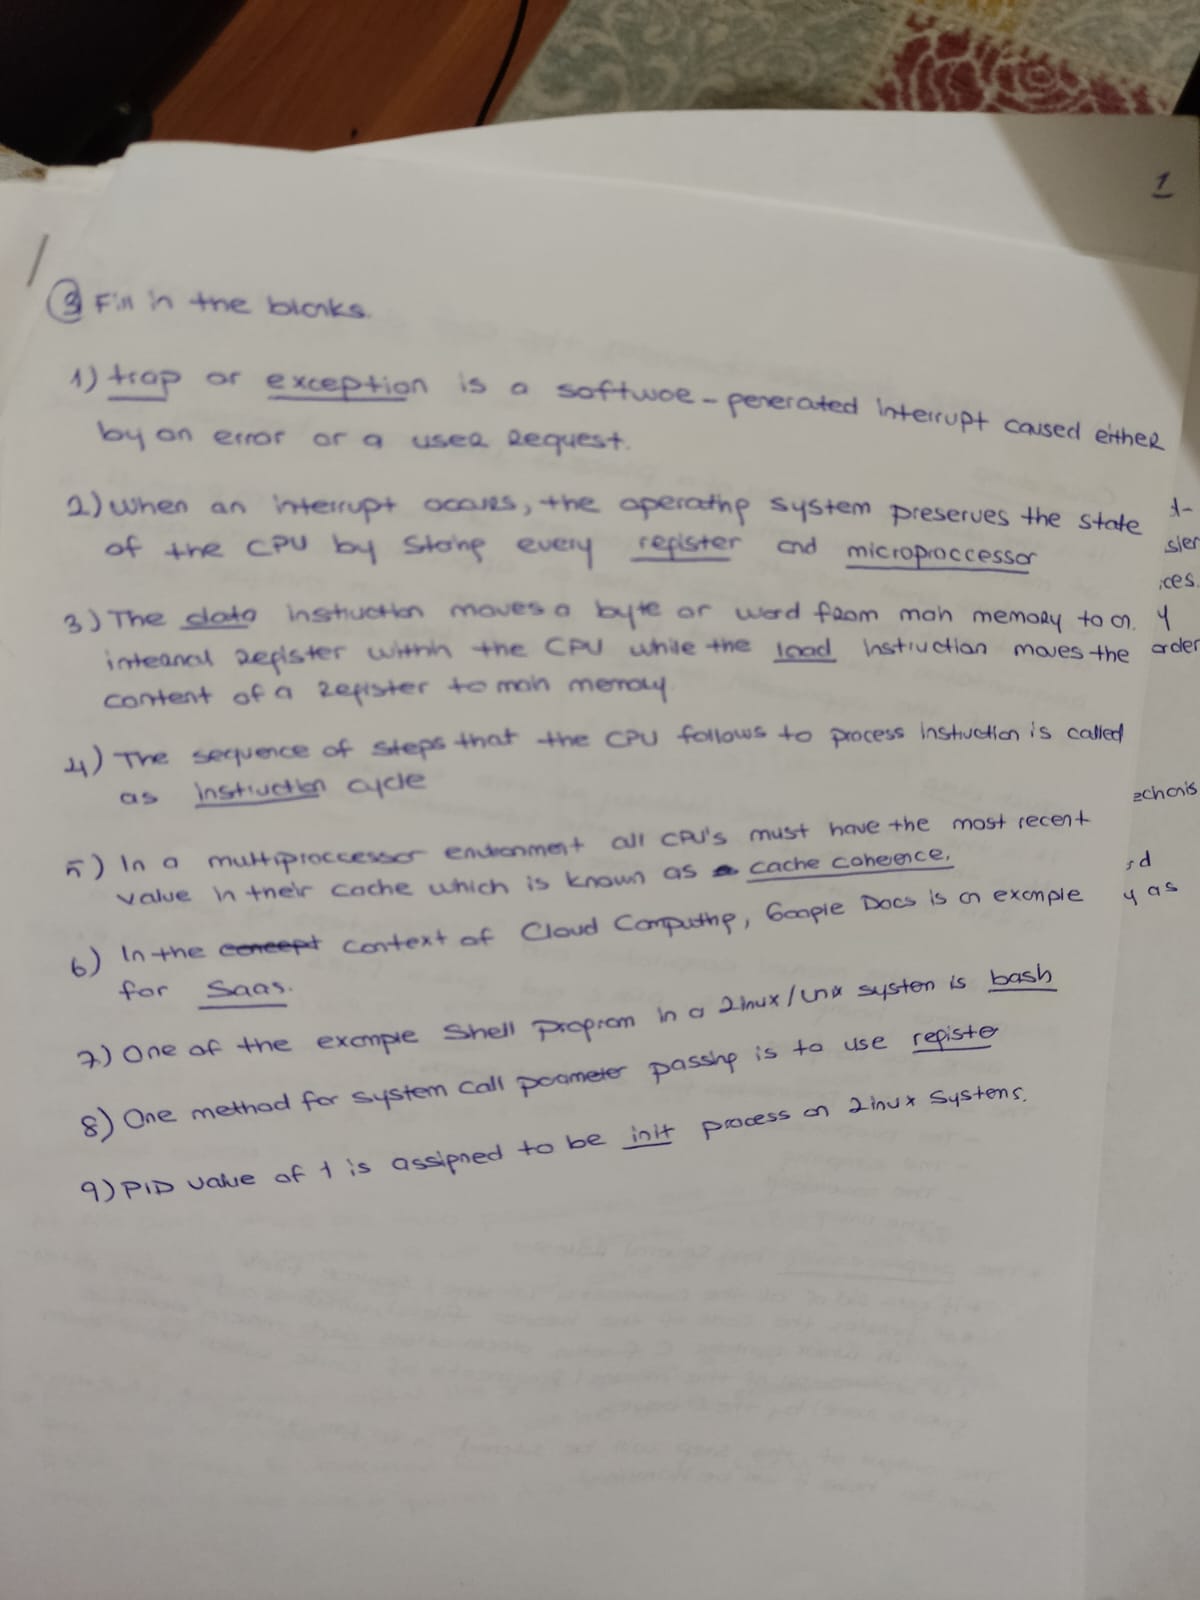 1
3 Fill in the blanks.
1) trap or exception is a softwoe-generated interrupt caused either
by an error or a user request.
2) When an interrupt occurs, the operating system preserves the state
of the CPU by storing every register and microproccessor
3) The data instruction moves a byte or word from main memory to an
internal register within the CPU while the load instruction moves the
content of a register to main memory.
4) The sequence of steps that the CPU follows to process instruction is called
as instruction cycle
5) In a multiproccessor environment all CPU's must have the most recent
value in their cache which is known as cache coherence.
6) In the concept context of Cloud Computing, Google Docs is an example
for Saas.
7) One of the example Shell program in a Linux/Unix system is bash
8) One method for system call parameter passing is to use register
9) PID value of 1 is assigned to be init process on Linux systems.
ices.
y
order
rd
y as